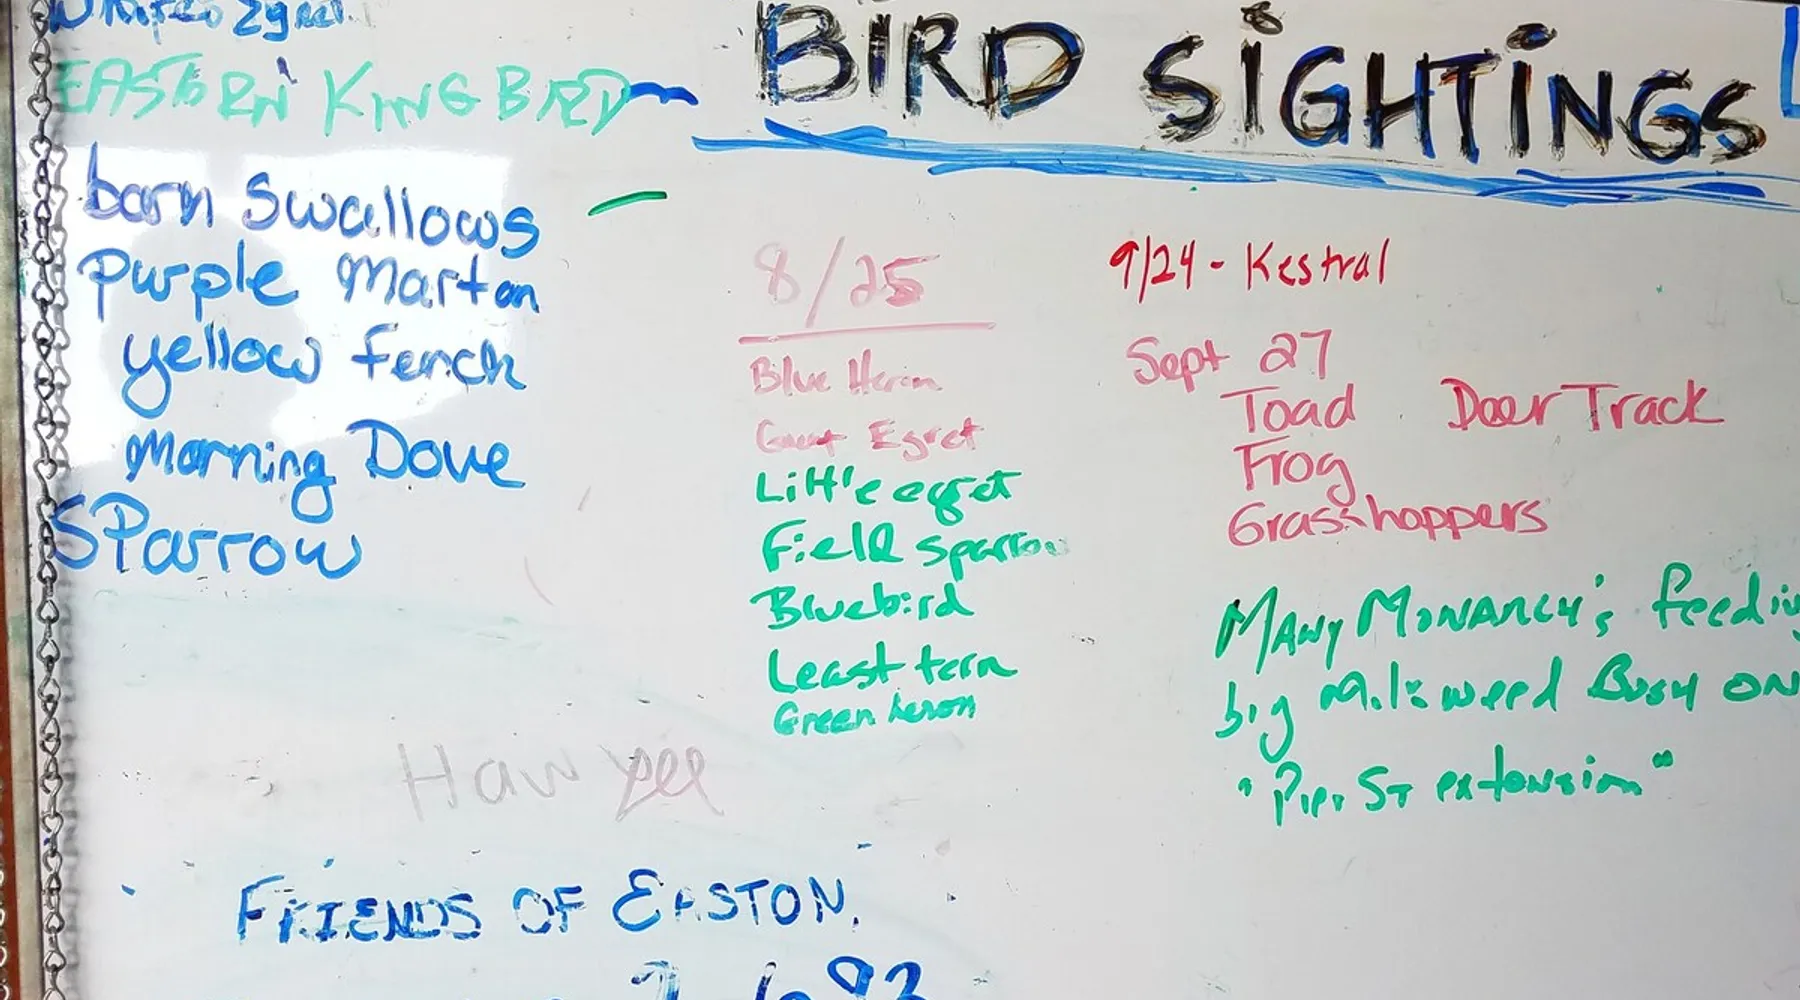 BIRD SIGHTINGS
EASTERN KINGBIRD
barn swallows
Purple Marton
yellow fench
Morning Dove
SParrow
8/25
Blue Heron
Great Egret
Little egret
Field sparrow
Bluebird
Least tern
Green heron
9/24 - Kestral
Sept 27
Toad Deer Track
Frog
Grasshoppers
MANY MONARCH's feedin
big Milkweed Bush ON
" St extension"
Haw yee
FRIENDS OF EASTON.